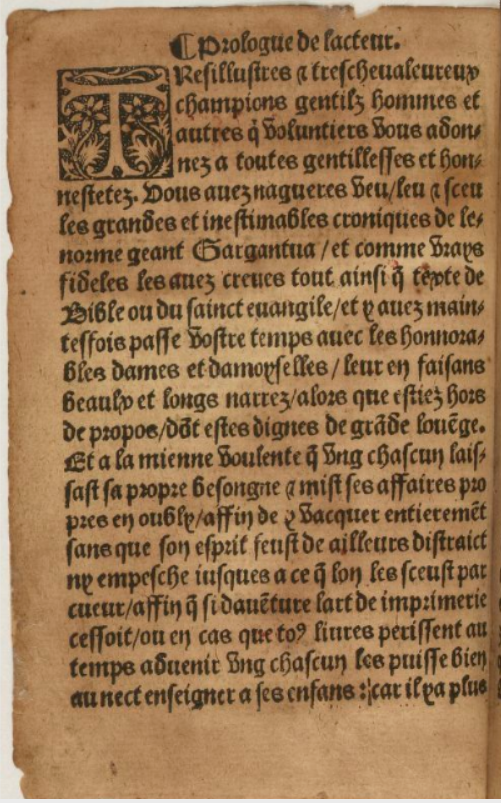 ¶ Prologue de lacteur.
TResillustres ⁊ treschevaleureux
champions gentilz hommes et
autres q̃ voluntiers vous adon⸗
nez a toutes gentillesses et hon⸗
nestetez. Vous avez nagueres veu/leu ⁊ sceu
les grandes et inestimables croniques de le⸗
norme geant Gargantua/et comme vrays
fideles les avez creues tout ainsi q̃ texte de
Bible ou du sainct evangile/et y avez main⸗
tesfois passe vostre temps avec les honnora⸗
bles dames et damoyselles/leur en faisans
beaulx et longs narrez/alors que estiez hors
de propos/dõt estes dignes de grãde louẽge.
Et a la mienne voulente q̃ ung chascun lais⸗
sast sa propre besongne ⁊ mist ses affaires pro
pres en oubly/affin de y vacquer entieremẽt
sans que son esprit feust de ailleurs distraict
ny empesche iusques a ce q̃ lon les sceust par
cueur/affin q̃ si davẽture lart de imprimerie
cessoit/ou en cas que toꝰ livres perissent au
temps advenir ung chascun les puisse bien
au nect enseigner a ses enfans : car il ya plus